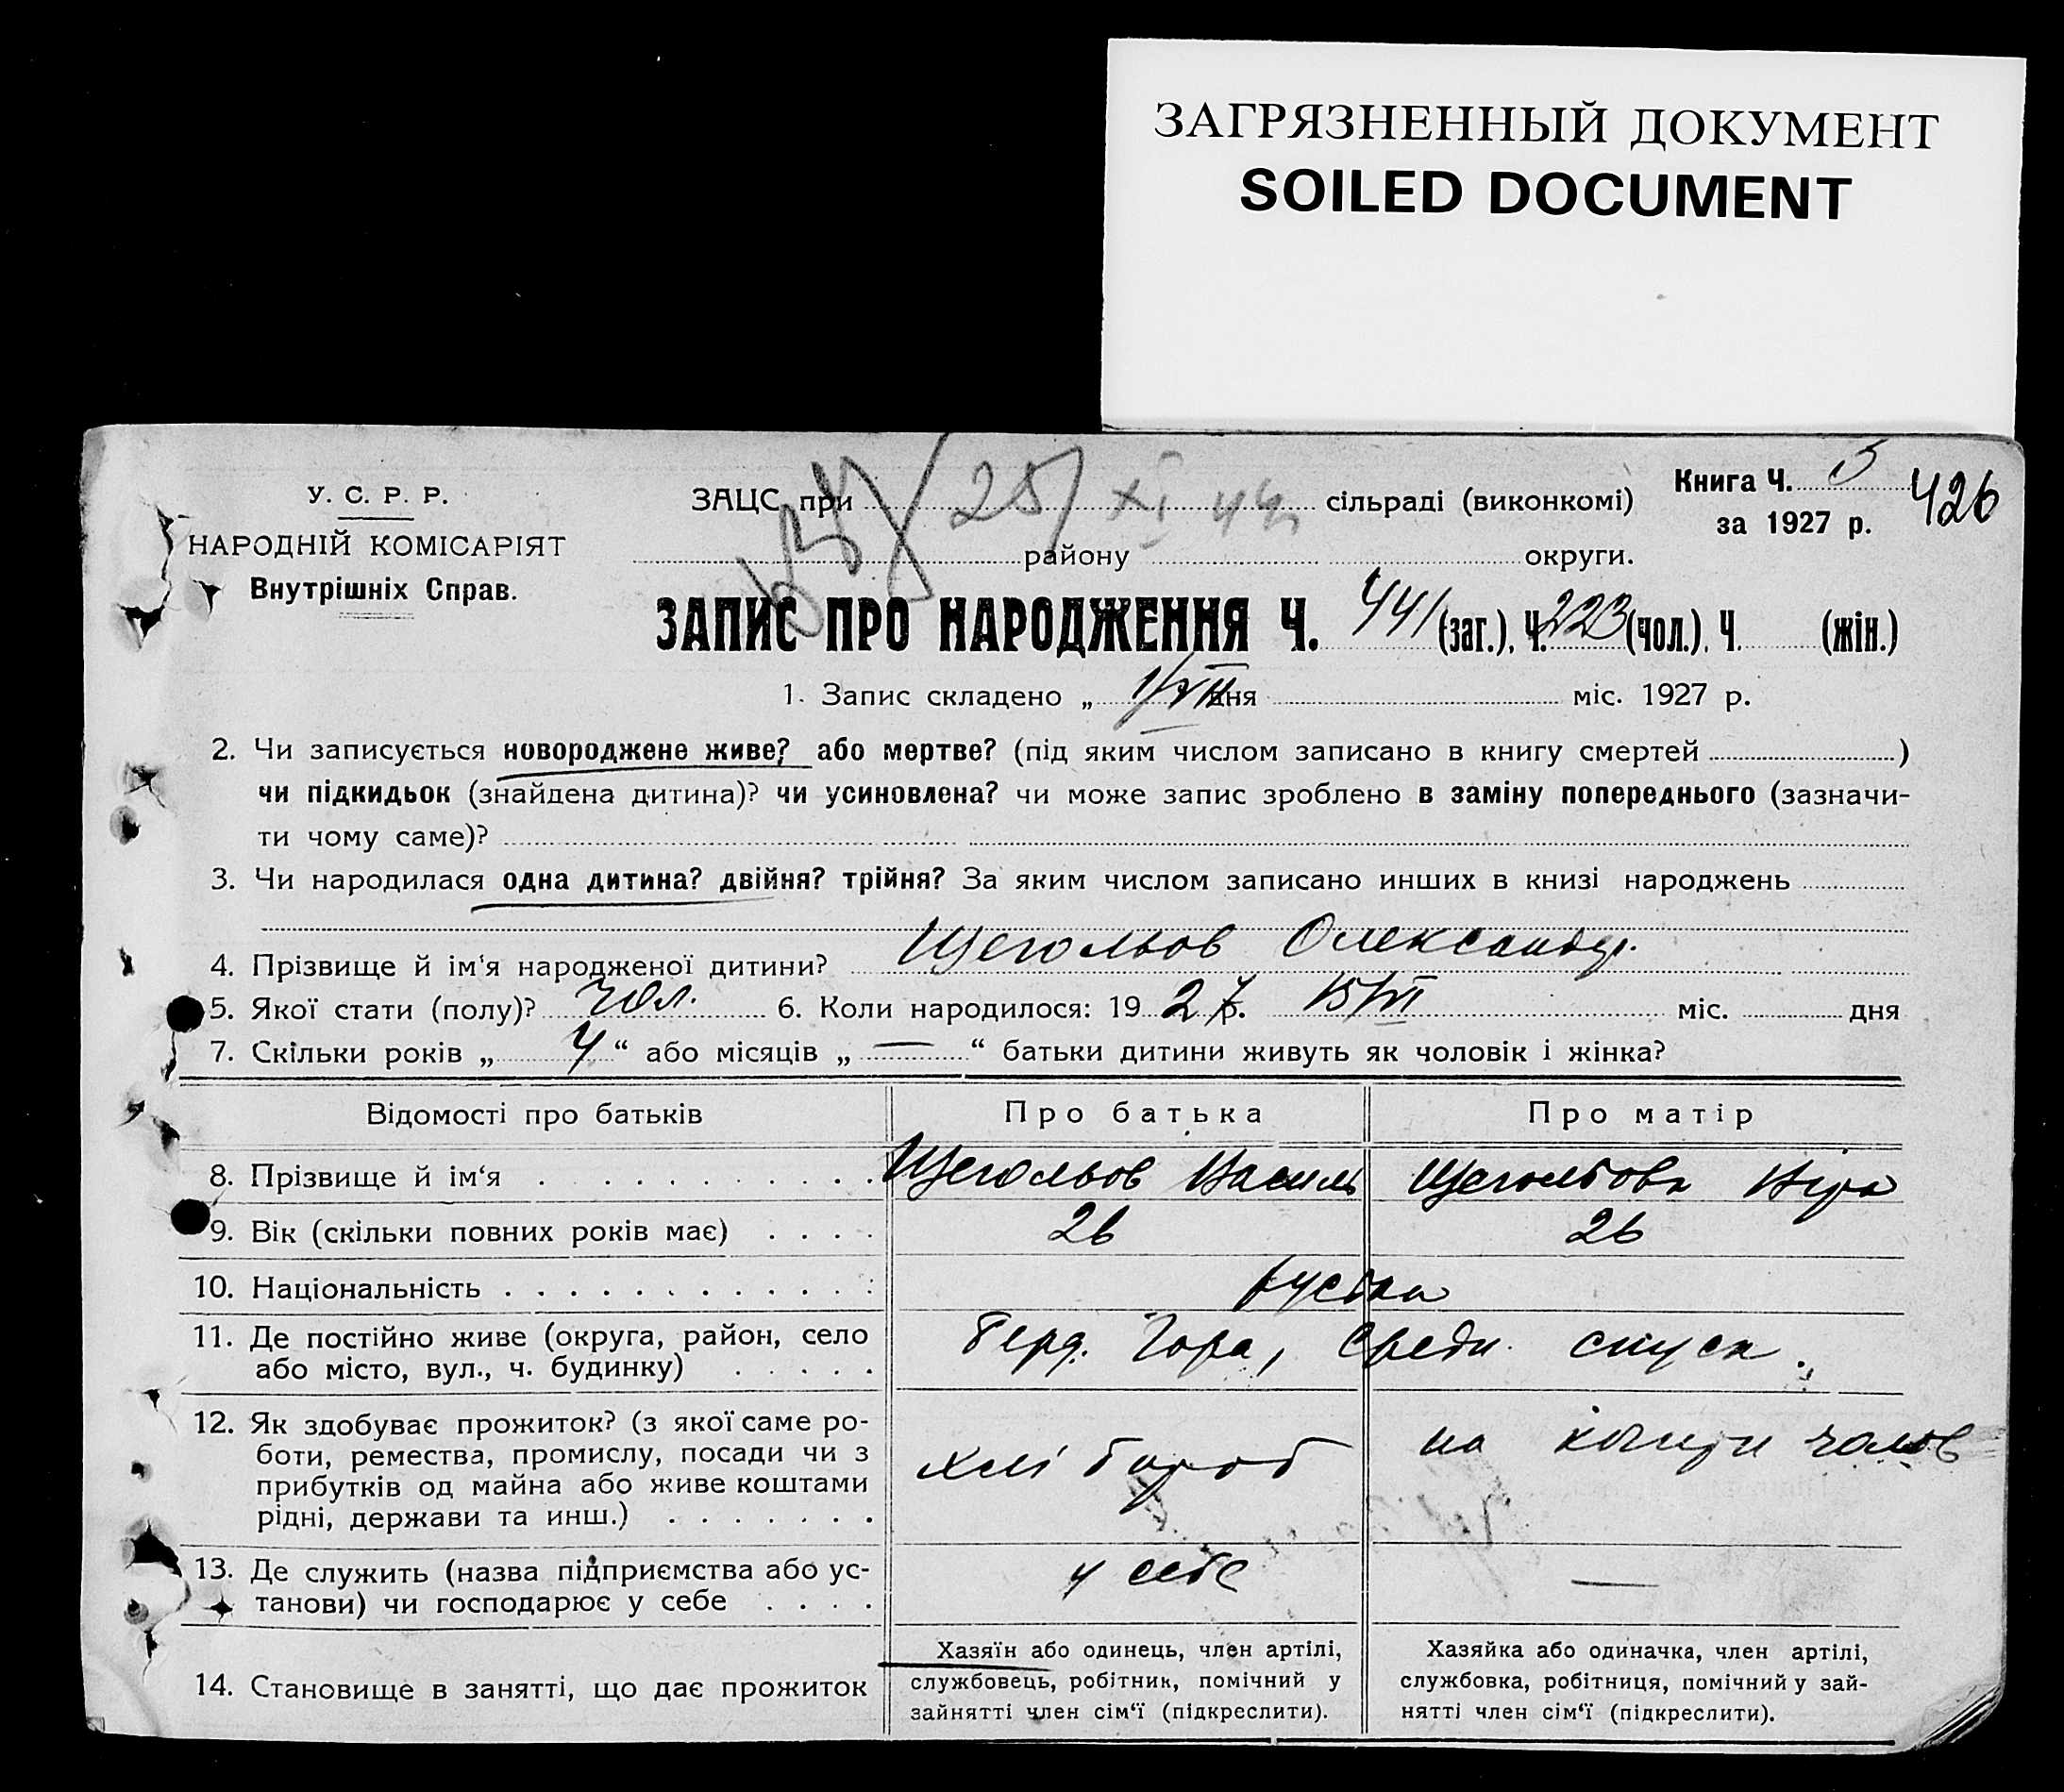 ЗАГРЯЗНЕННЫЙ ДОКУМЕНТ
SOILED DOCUMENT
У. С. Р. Р.
НАРОДНІЙ КОМІСАРІЯТ
Внутрішніх Справ.
ЗАЦС при 25/XI сільраді (виконкомі)
району округи.
Книга Ч. 5
за 1927 р.
426
ЗАПИС ПРО НАРОДЖЕННЯ Ч. 441 (заг.), Ч. 223 (чол.), Ч. (жін.)
1. Запис складено „ дня міс. 1927 р.
2. Чи записується новороджене живе? або мертве? (під яким числом записано в книгу смертей )
чи підкидьок (знайдена дитина)? чи усиновлена? чи може запис зроблено в заміну попереднього (зазначи-
ти чому саме)?
3. Чи народилася одна дитина? двійня? трійня? За яким числом записано инших в книзі народжень
4. Прізвище й ім'я народженої дитини? Щегольов Олександр.
5. Якої стати (полу)? чол. 6. Коли народилося: 1927 р. 15/VI міс. дня
7. Скільки років „ 4 “ або місяців „ — “ батьки дитини живуть як чоловік і жінка?
Відомості про батьків Про батька Про матір
8. Прізвище й ім'я Щегольов Василь Щегольова Віра
9. Вік (скільки повних років має) 26 26
10. Національність руська
11. Де постійно живе (округа, район, село
або місто, вул., ч. будинку)
Берд. Гора, Средн. спуск.
12. Як здобуває прожиток? (з якої саме ро-
боти, ремества, промислу, посади чи з
прибутків од майна або живе коштами
рідні, держави та инш.)
хлібороб на кошти чолов
13. Де служить (назва підприємства або ус-
танови) чи господарює у себе
у себе —
14. Становище в занятті, що дає прожиток
Хазяїн або одинець, член артілі,
службовець, робітник, помічний у
зайнятті член сім'ї (підкреслити).
Хазяйка або одиначка, член артілі,
службовка, робітниця, помічний у зай-
нятті член сім'ї (підкреслити).